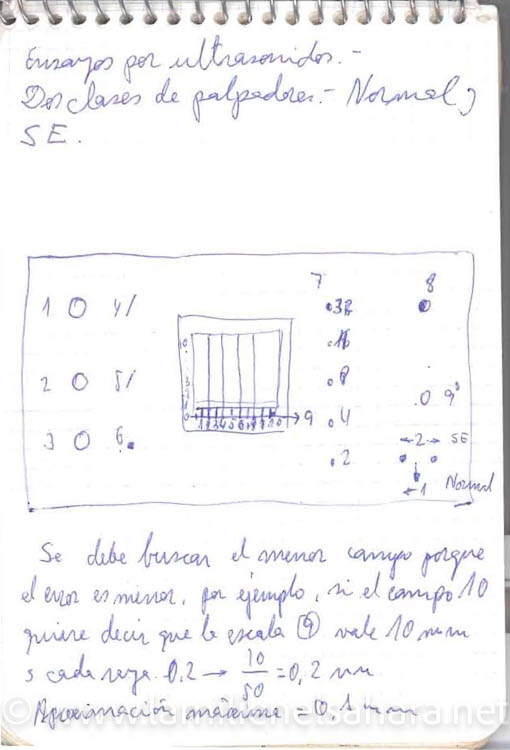 Ensayos por ultrasonidos.-
Dos clases de palpadores.- Normal y
SE.
7 8
1 4/ 32
16
2 5/ 8
9'
3 6 1 2 3 4 5 6 7 8 9 10 9 4
2 SE
2
1 Normal
Se debe buscar el menor campo porque
el error es menor, por ejemplo, si el campo 10
quiere decir que la escala 9 vale 10 mm
y cada raya 0,2 → 10/50 = 0,2 mm
Aproximación máxima = 0,1 mm
© www.lamilienelsahara.net